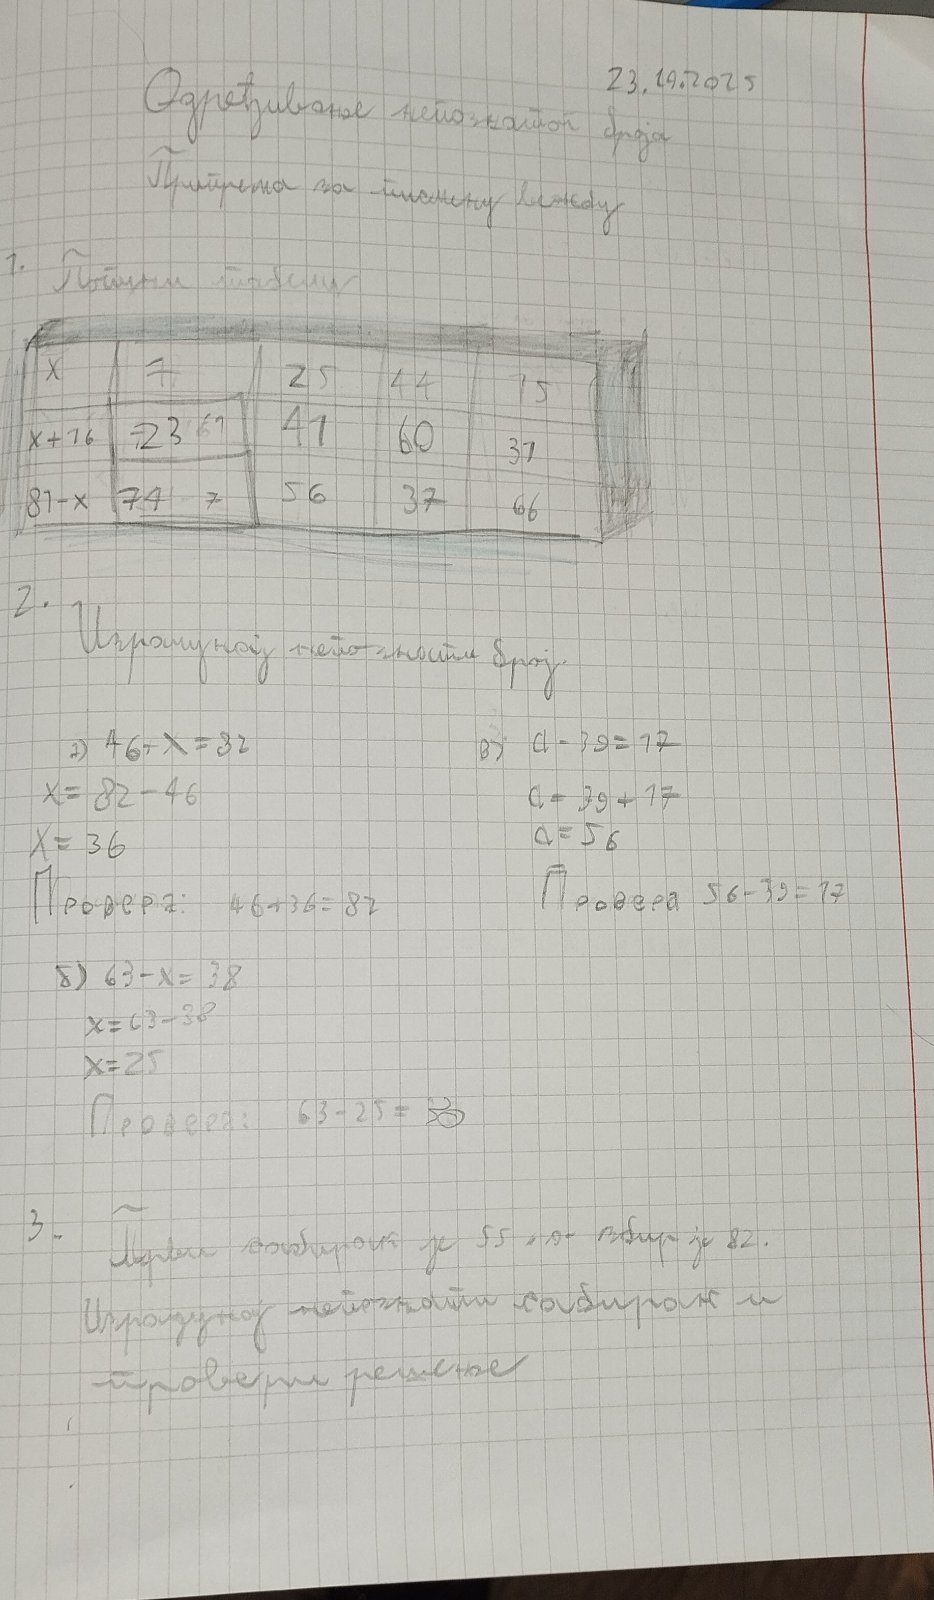 23.10.2025
Одређивање непознатог броја
Припрема за писмену вежбу
1. Попуни табелу
x 7 25 44 15
x+16 23 61 41 60 31
81-x 74 7 56 37 66
2.
Израчунај непознати број.
а) 46+x=82 в) a-39=17
x=82-46 a=39+17
x=36 a=56
Провера: 46+36=82 Провера 56-39=17
б) 63-x=38
x=63-38
x=25
Провера: 63-25=38
3. Први сабирак је 55, а збир је 82.
Израчунај непознати сабирак и
провери решење